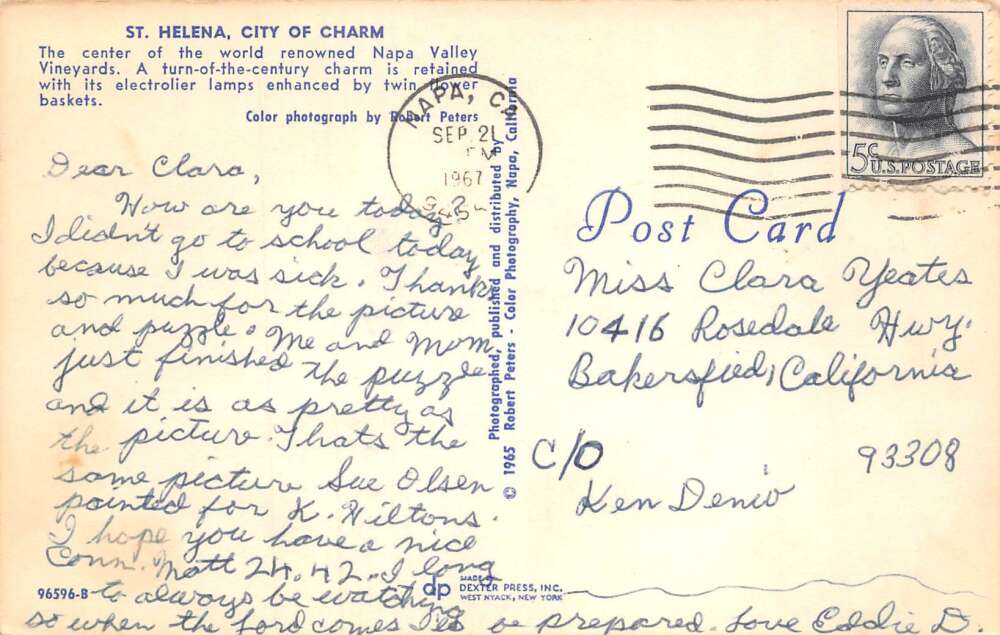 ST. HELENA, CITY OF CHARM
The center of the world renowned Napa Valley
Vineyards. A turn-of-the-century charm is retained
with its electrolier lamps enhanced by twin flower
baskets.
Color photograph by Robert Peters
NAPA, CA
SEP 21
PM
1967
5c U.S. POSTAGE
Dear Clara,
How are you today
I didn't go to school today
because I was sick. Thanks
so much for the picture
and puzzle. Me and Mom
just finished the puzzle
and it is as pretty as
the picture. Thats the
same picture Sue Olsen
painted for K. Hiltons.
I hope you have a nice
Conn. Matt 24.42. I long
to always be watching
so when the Lord comes I'll be prepared. Love Eddie D.
Photographed, published and distributed by
© 1965 Robert Peters - Color Photography, Napa, California
Post Card
Miss Clara Yeates
10416 Rosedale Hwy.
Bakersfied, California
C/O 93308
Ken Denio
96596-B
dp MADE BY
DEXTER PRESS, INC.
WEST NYACK, NEW YORK